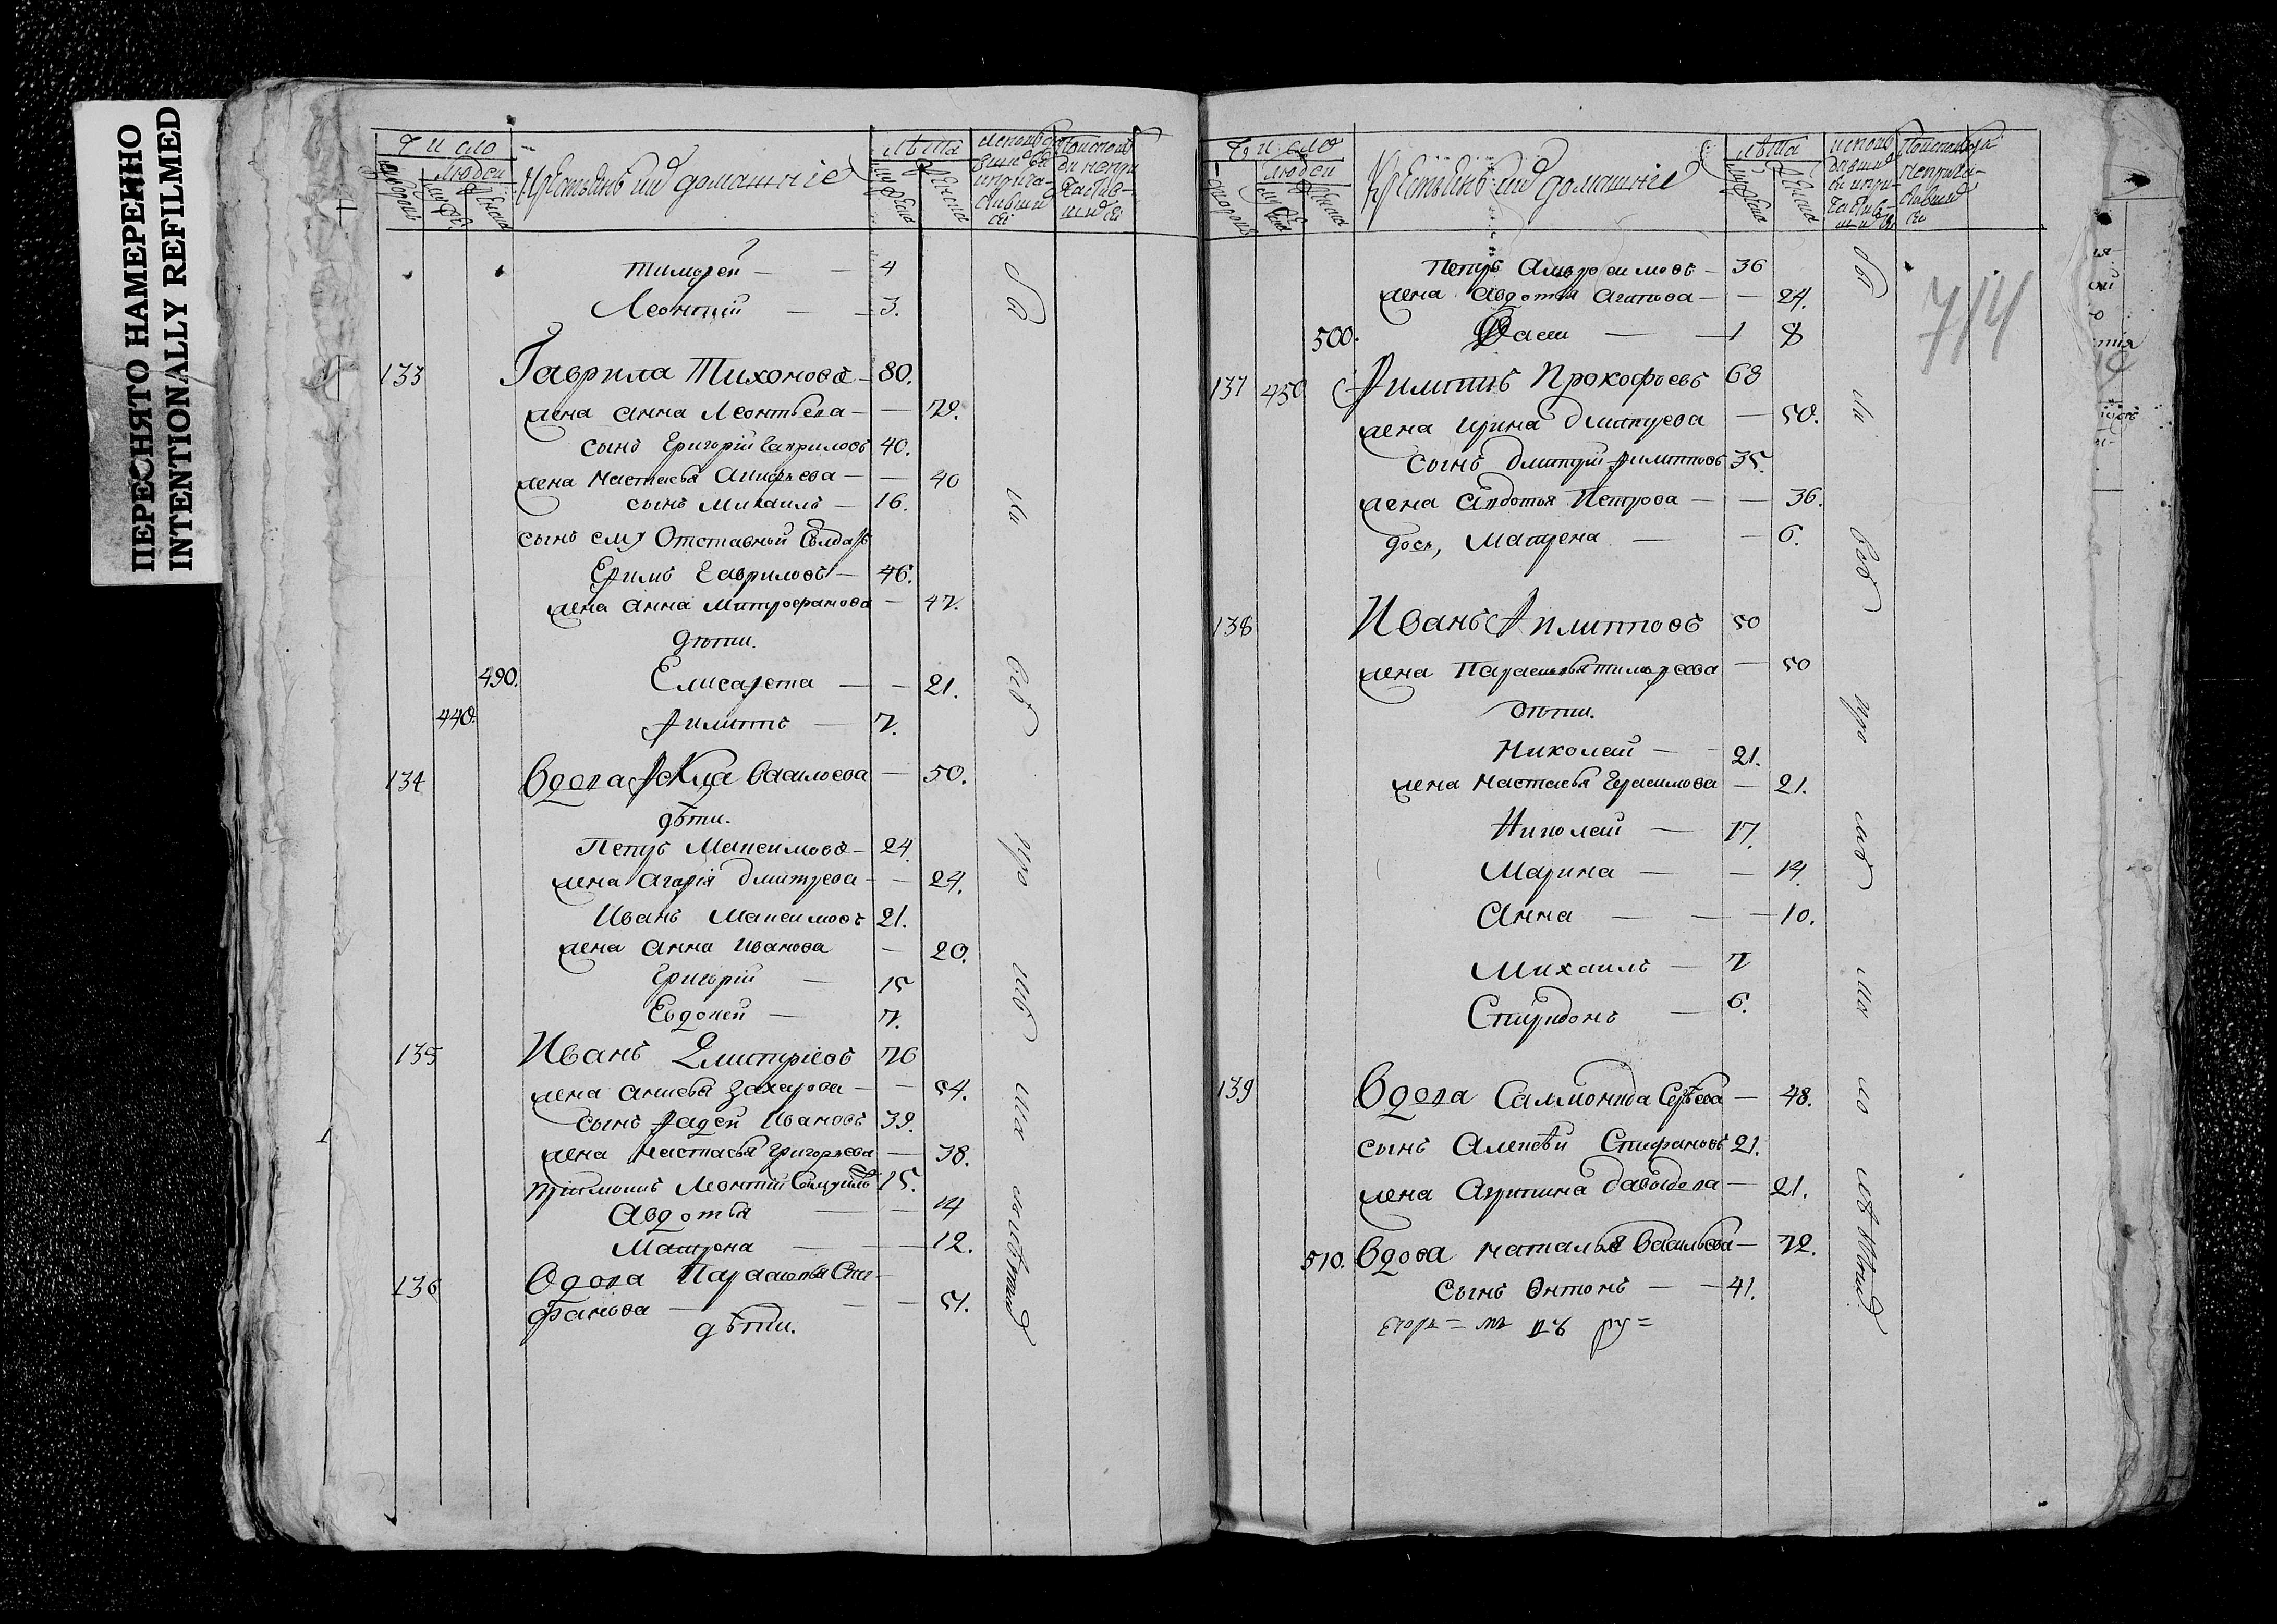 ПЕРЕСНЯТО НАМЕРЕННО
INTENTIONALLY REFILMED
Число
Людей
Крестьянъ ихъ домашніе
лѣта
Тимофей — — 4
Леонтій — — 3.
133 Гаврила Тихоновъ — 80.
жена Анна Леонтьева — — 79.
сынъ Григорій Гавриловъ 40.
жена Настасья — — 40
сынъ Михаилъ — 16.
сынъ ему Отставный Солдатъ
Ефимъ Гавриловъ — 46.
жена Анна Митрофанова — 47.
дѣти.
490. Елисафета — — 21.
440. Филиппъ — 7.
134 Вдова Васильева — 50.
дѣти.
Петръ Максимовъ — 24.
жена Агафія Дмитрева — — 24.
Иванъ Максимовъ 21.
жена Анна Иванова — 20.
Григорій — 15
Евдокей — 7.
135 Иванъ Дмитріевъ 76
жена Анисья Захарова — — 54.
сынъ Фадей Ивановъ 39.
жена Настасья Григорьева — 38.
Леонтій 15.
Авдотья — — 14
Матрена — — 12.
136 Вдова Парасковья Сте-
фанова — — — 51.
дѣти.
Число
Людей
Крестьянъ ихъ домашніе
лѣта
714
Петръ Амвросимовъ — 36
жена Авдотья Агапова — — 24.
500. — 1 8
137 450 Филиппъ Прокофьевъ 68
жена Ирина Дмитрева — 50.
сынъ Дмитрій Филипповъ 35.
жена Авдотья Петрова — — 36.
дочь, Матрена — — 6.
138 Иванъ Филипповъ 50
жена Парасковья Тимофеева — 50
дѣти.
Николай — — 21.
жена Настасья Герасимова — 21.
Николай — 17.
Марина — — 14.
Анна — — — 10.
Михаилъ — 7
Спиридонъ — 6.
139 Вдова Саламонида — 48.
сынъ Алексѣй Стефановъ 21.
жена Агрипина Давыдова — 21.
510. Вдова Наталья Васильева — 72.
сынъ Антонъ — — 41.